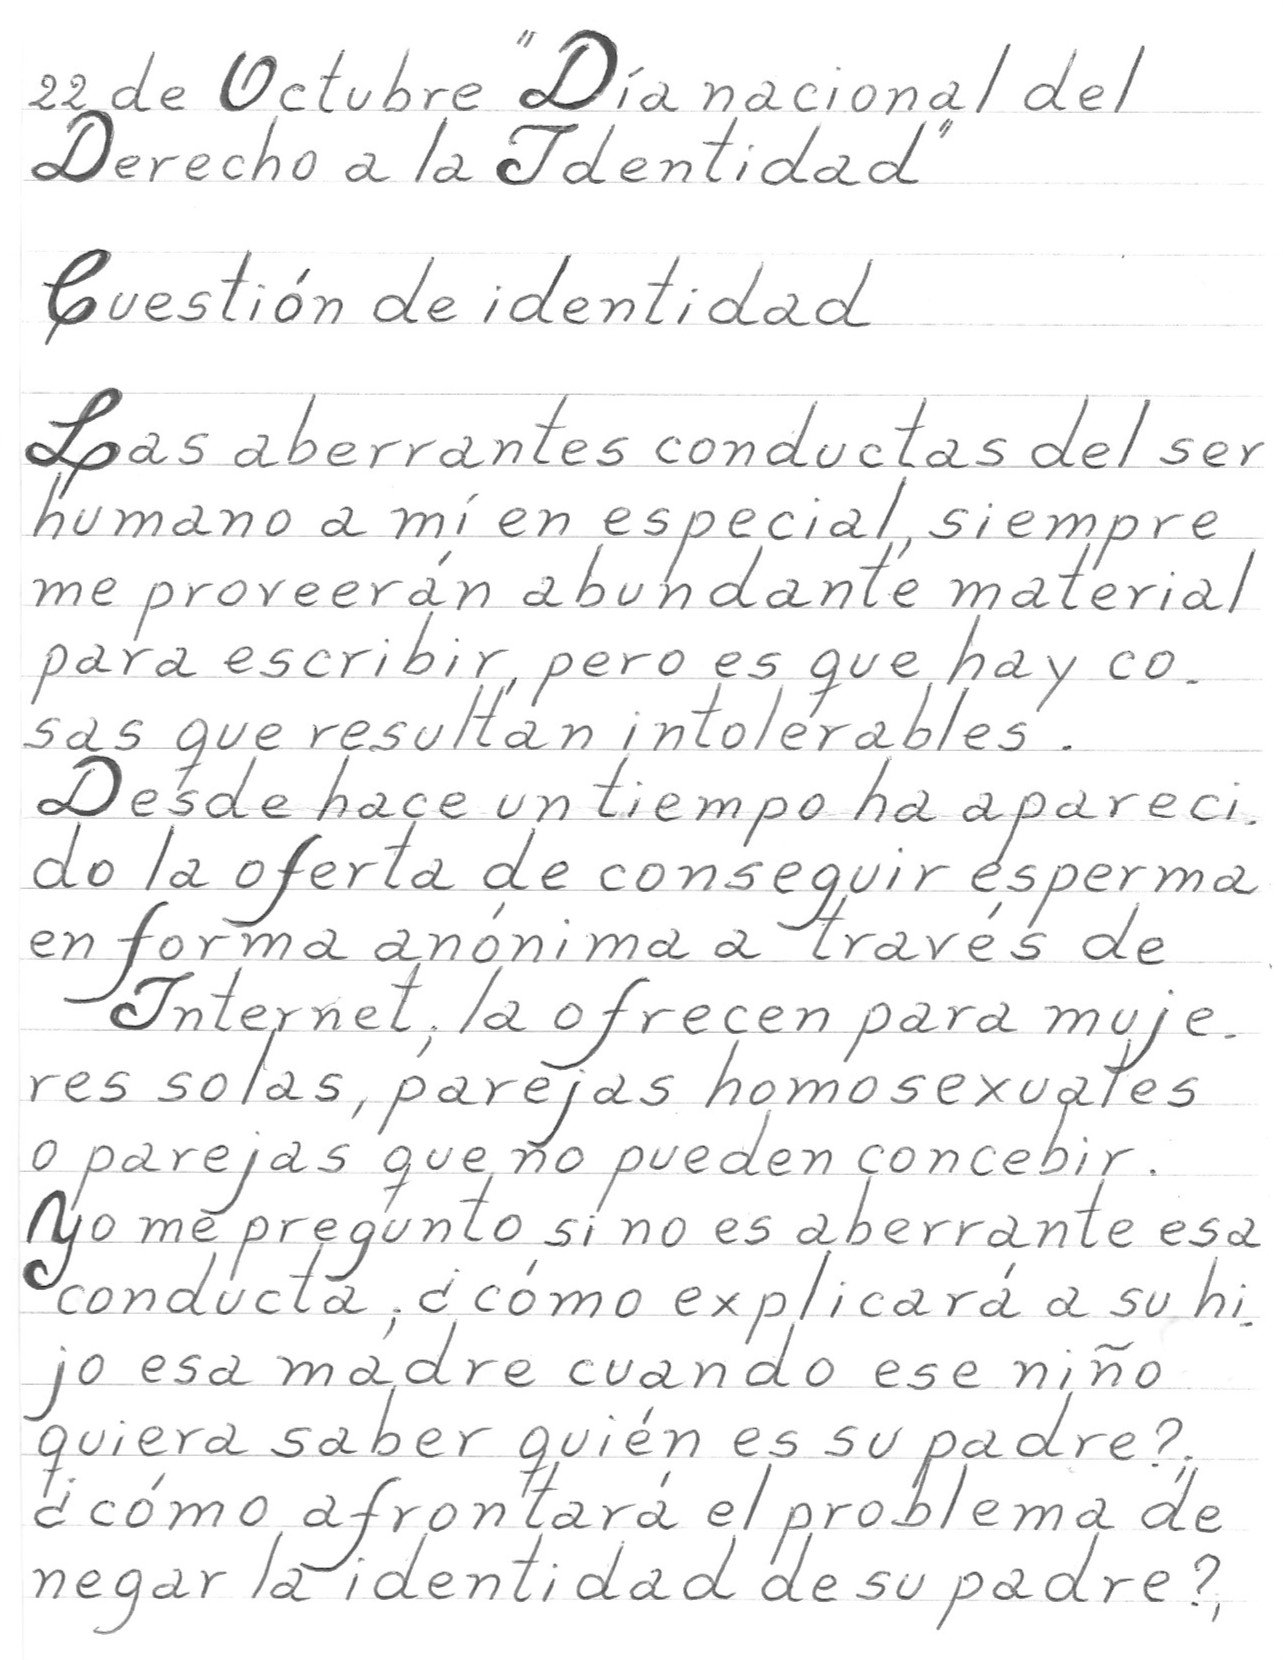 22 de Octubre "Día nacional del
Derecho a la Identidad"
Cuestión de identidad
Las aberrantes conductas del ser
humano a mí en especial, siempre
me proveerán abundante material
para escribir, pero es que hay co-
sas que resultan intolerables.
Desde hace un tiempo ha apareci-
do la oferta de conseguir esperma
en forma anónima a través de
Internet; la ofrecen para muje-
res solas, parejas homosexuales
o parejas que no pueden concebir.
Yo me pregunto si no es aberrante esa
conducta; ¿cómo explicará a su hi-
jo esa madre cuando ese niño
quiera saber quién es su padre?;
¿cómo afrontará el problema de
negar la identidad de su padre?,